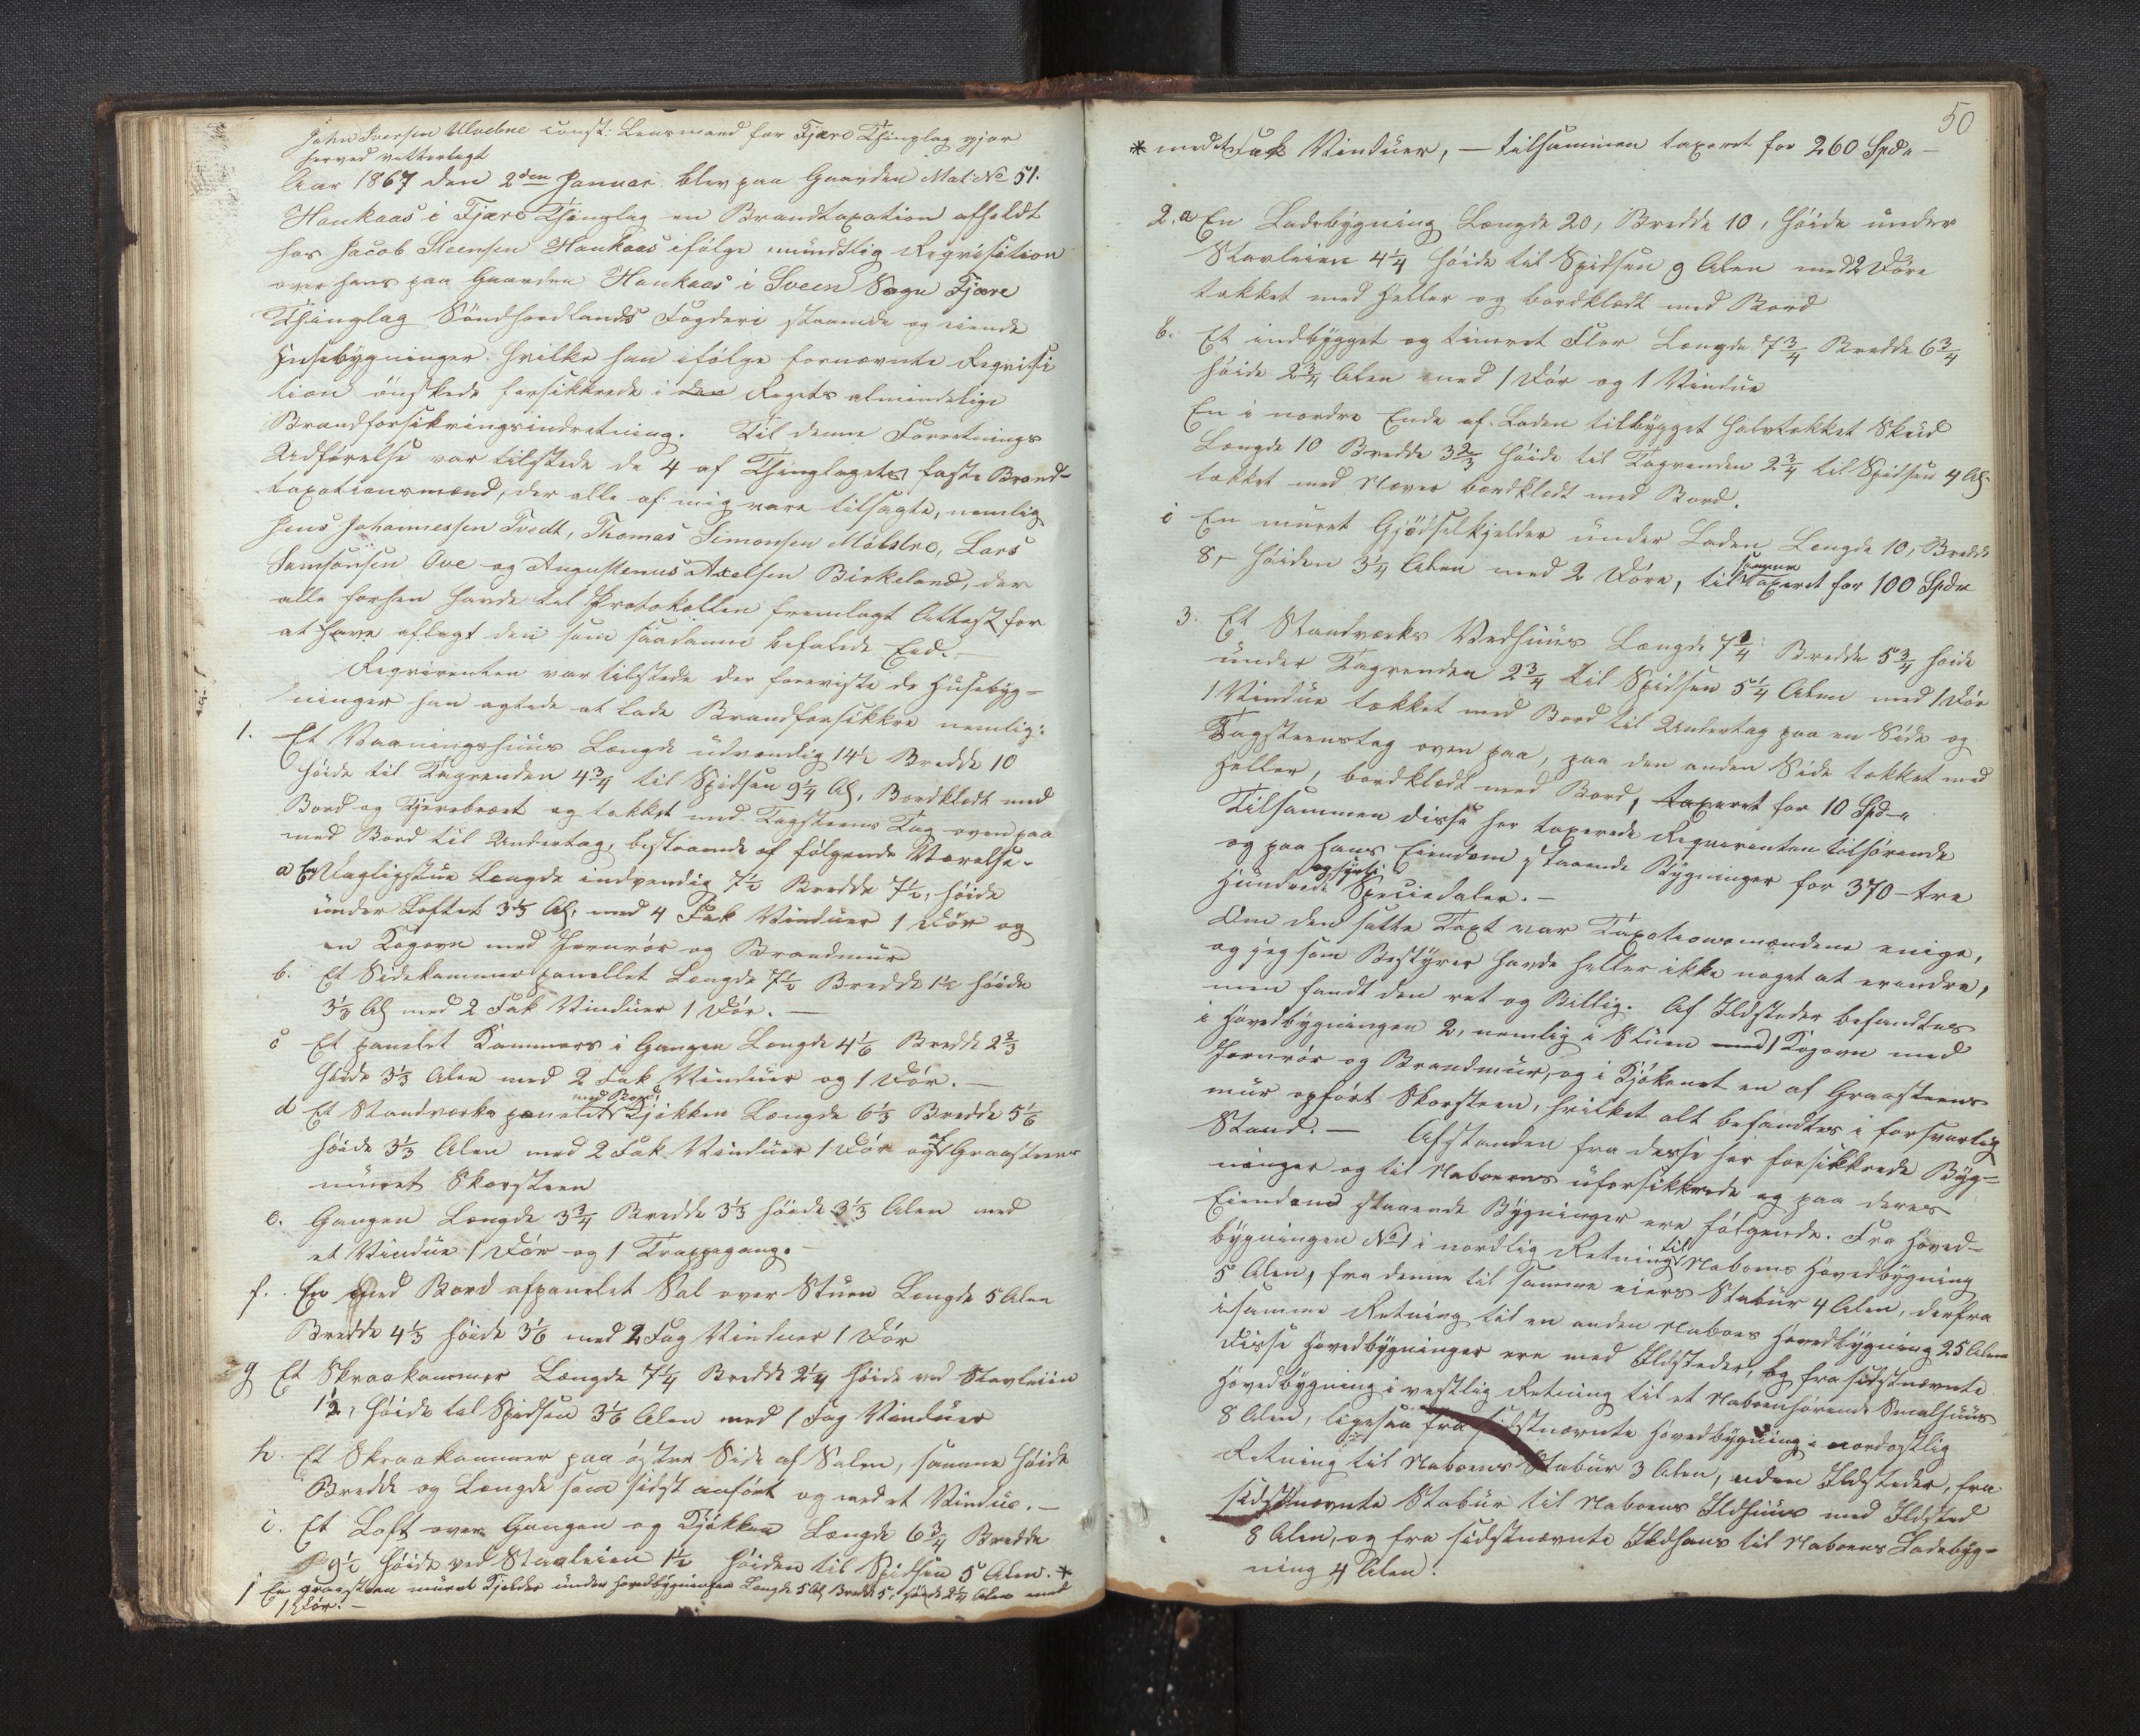 John Iversen Ulvebne const: Lensmand for Fjære Thinglag gjør
herved vitterligt
Aar 1867 den 2den Januar blev paa Gaarden Mat: No 51.
Haukaas i Fjære Thinglag en Brandtaxation afholdt
hos Jacob Steensen Haukaas ifølge mundtlig Reqvisition
over hans paa Gaarden Haukaas i Sveen Sogn Fjære
Thinglag Söndhordlands Fogderi staaende og eiende
Husebygninger hvilke han ifølge fornævnte Reqvisi
tion önskede forsikkrede i den Rigets almindelige
Brandforsikringsindretning. Til denne Forretnings
Udførelse var tilstede de 4 af Thinglagets faste Brand-
taxationsmænd, der alle af mig vare tilsagte, nemlig
Jens Johannessen Tvedt, Thomas Simonsen Mølstre, Lars
Samsonsen Ove og Augustenus Axelsen Birkeland, der
alle forhen havde til Protokollen fremlagt Attest for
at have aflagt den som saadanne befalede Eed. -
Reqvirenten var tilstede der foreviste de Husebyg=
ninger han agtede at lade Brandforsikkre nemlig:
1. Et Vaaningshuus Længde udvendig 14½ Bredde 10
høide til Tagrenden 4¾ til Spidsen 9¼ Al, Bordklædt med
Bord og Tjærebræet og takket med Tagsteens Tag oven paa
med Bord til Undertag, bestaaende af følgende Værelse.
a En Dagligstue Længde indvendig 7½ Bredde 7½, høide
under Loftet 3⅓ Al, med 4 Fak Vinduer 1 Dör og
en Kogovn med Jernrör og Brandmuur
b. Et Sidekammer panellet Længde 7½ Bredde 1½ høide
3⅓ Al med 2 Fak Vinduer 1 Dör. —
c Et panelet Kammers i Gangen Længde 4⅙ Bredde 2⅔
høide 3⅓ Alen med 2 Fak Vinduer og 1 Dör. —
med Bord
d Et Standværks panelet Kjökken Længde 6⅓ Bredde 5⅙
høide 3⅓ Alen med 2 Fak Vinduer 1 Dör og af Graasteens
muret Skorsteen
e. Gangen Længde 3¾ Bredde 3⅓ høide 3⅓ Alen med
et Vindue 1 Dör og 1 Trappegang. -
f. En med Bord afpanelet Sal over Stuen Længde 5 Alen
Bredde 4⅓ høide 3⅙ med 2 Fag Vinduer 1 Dör
g Et Skraakammer Længde 7¼ Bredde 2¼ høide ved Stavleiin
½, høide tel Spidsen 3⅙ Alen med 1 Fag Vinduer
h. Et Skraakammer paa östre Side af Salen, samme høide
Bredde og Længde som sidst anfört og med et Vindue. -
i. Et Loft over Gangen og Kjökken Længde 6¾ Bredde
9½ høide ved Stavleien 1½ høiden til Spidsen 5 Alen. *
j En graasteen muret Kjelder under hovedbygningen Længde 5 Al Bredde 5, høide 2¼ Alen med
1 Dör. -
50
* med et Fak Vinduer, — tilsammen taxeret for 260 Spd. -
2. a En Ladebygning Længde 20, Bredde 10, høide under
Stavleien 4¼ høide til Spidsen 9 Alen med 2 Döre
takket med Heller og bordklædt med Bord
b. Et indbygget og timret Flor Længde 7¾ Bredde 6¾
høide 2¾ Alen med 1 Dör og 1 Vindue
En i nordre Ende af Laden tilbygget halvtakket Skud
Længde 10 Bredde 3⅔ høide til Tagrenden 2¾ til Spidsen 4 Al.
takket med Næver bordklædt med Bord.
c En muret Gjödselkjelder under Laden Længde 10, Bredde
8, - høiden 3¼ Alen med 2 Döre, tilsammen taxeret for 100 Spd
3. Et Standværks Vedhuus Længde 7¼ Bredde 5¾ høide
under Tagrenden 2¾ til Spidsen 5¼ Alen med 1 Dör
1 Vindue takket med Bord til Undertag paa en Side og
Tagsteenstag oven paa, paa den anden Side takket med
Heller, bordklædt med Bord, taxeret for 10 Spd.
Tilsammen disse her taxerede Reqvirenten tilhörende
og paa hans Eiendom staaende Bygninger for 370 - tre
og sytti
Hundrede Speciedaler. -
Om den satte Taxt var Taxationsmændene enige,
og jeg som Bestyrer havde heller ikke noget at erindre,
men fandt den ret og Billig. Af Ildsteder befandtes
i Hovedbygningen 2, nemlig i Stuen med 1 Kogovn med
Jernrör og Brandmuur, og i Kjökenet en af Graasteens
muur opfört Skorsteen, hvilket alt befandtes i forsvarlig
Stand. — Afstanden fra disse her forsikkrede Byg=
ninger og til Naboernes uforsikkrede og paa deres
Eiendom staaende Bygninger ere følgende. Fra hoved-
bygningen No 1 i nordlig Retning til Naboens Hovedbygning
5 Alen, fra denne til samme eiers Stabur 4 Alen, derfra
i samme Retning til en anden Naboes Hovedbygning 25 Alen
disse Hovedbygninger ere med Ildsteder, og fra sidstnævnte
Hovedbygning i vestlig Retning til et Naboen hørende Smalhuus
8 Alen, ligesaa fra sidstnævnte Hovedbygning i nordostlig
Retning til Naboens Stabur 3 Alen, uden Ildsteder, fra
sidstnævnte Stabur til Naboens Ildhuus med Ildsted
8 Alen, og fra sidstnævnte Ildhuus til Naboens Ladebyg-
ning 4 Alen.